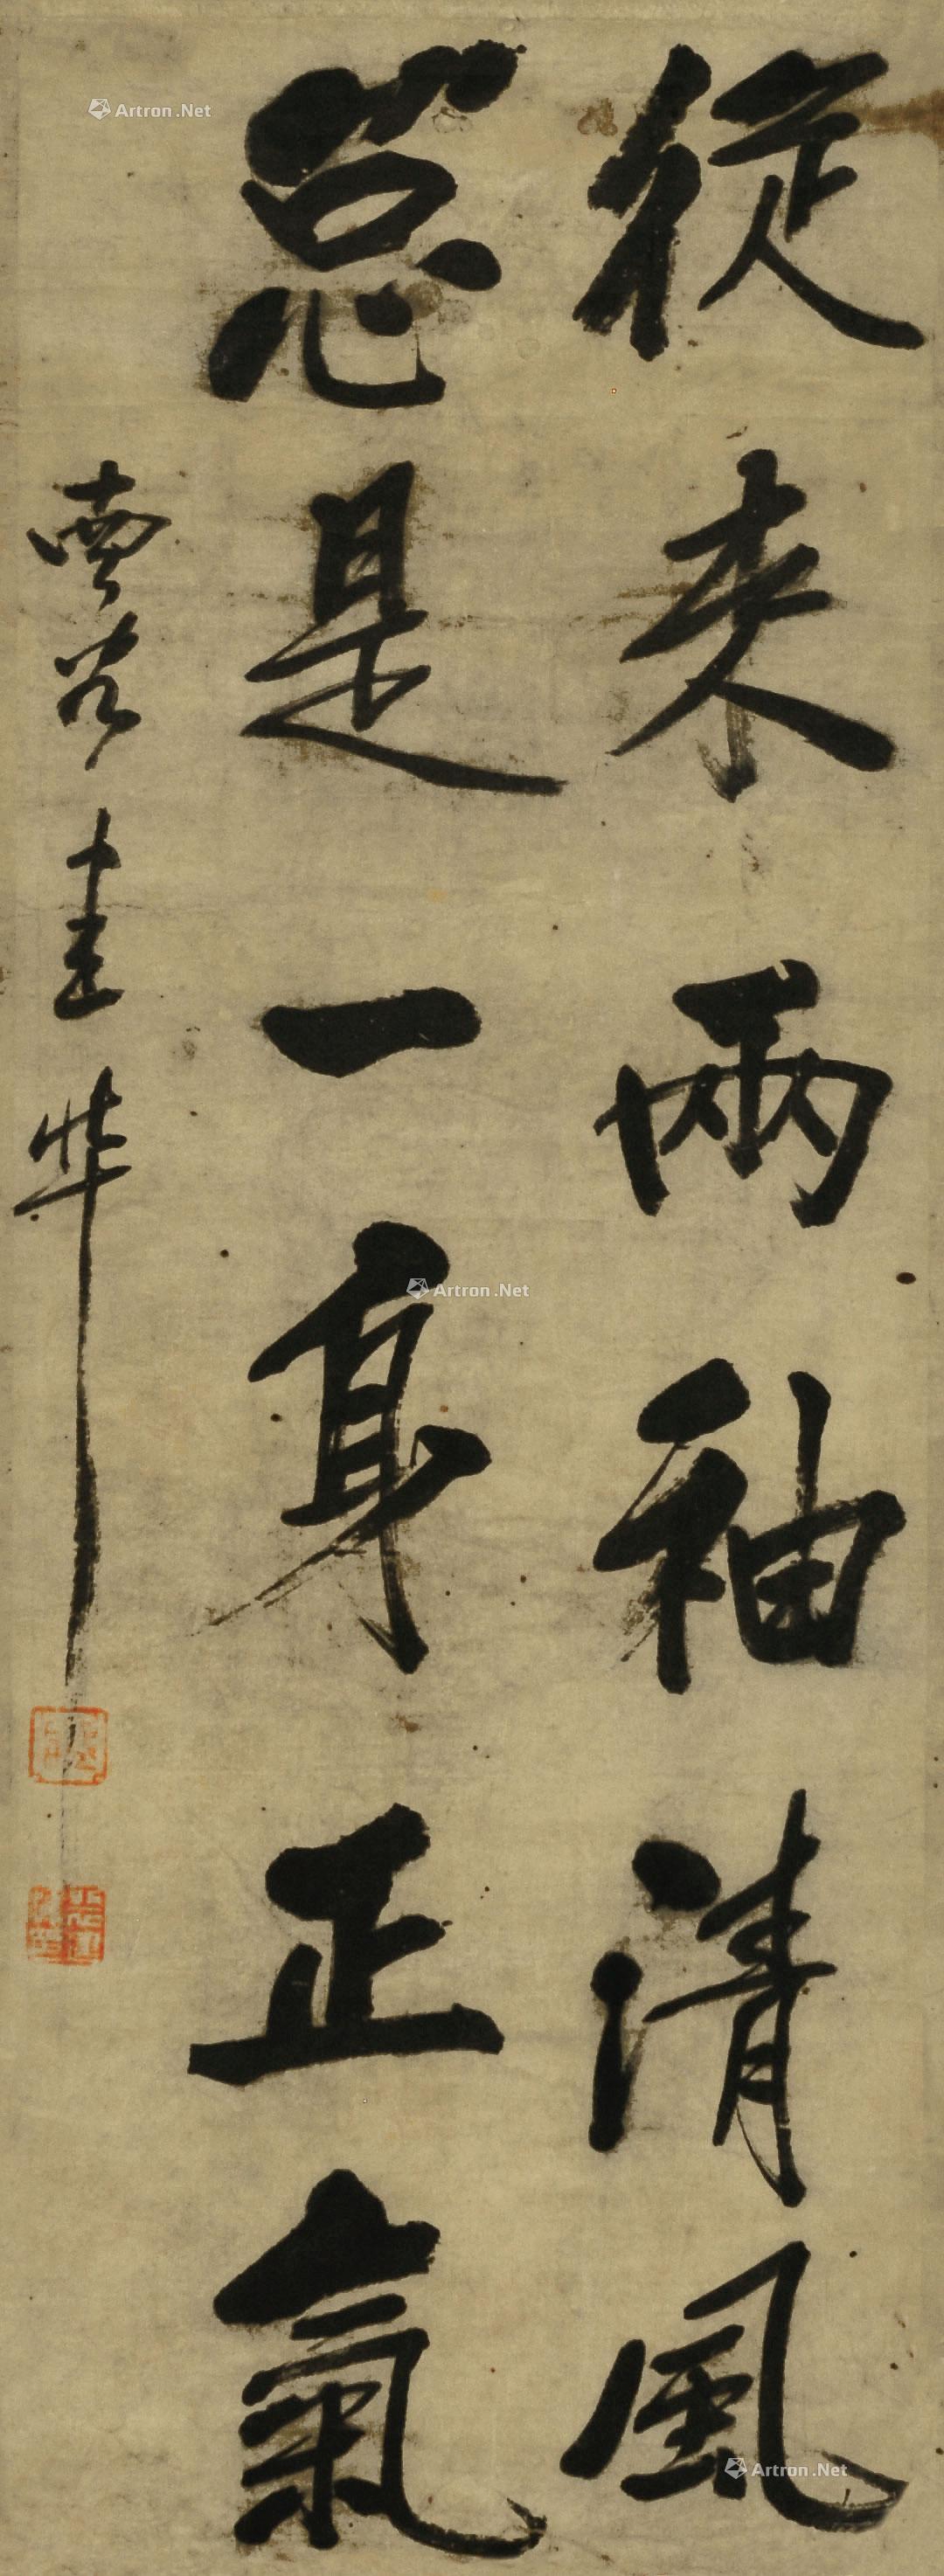 從来兩袖清風
怱是一身正氣
雲谷王華
Artron.Net
Artron.Net
Artron.Net